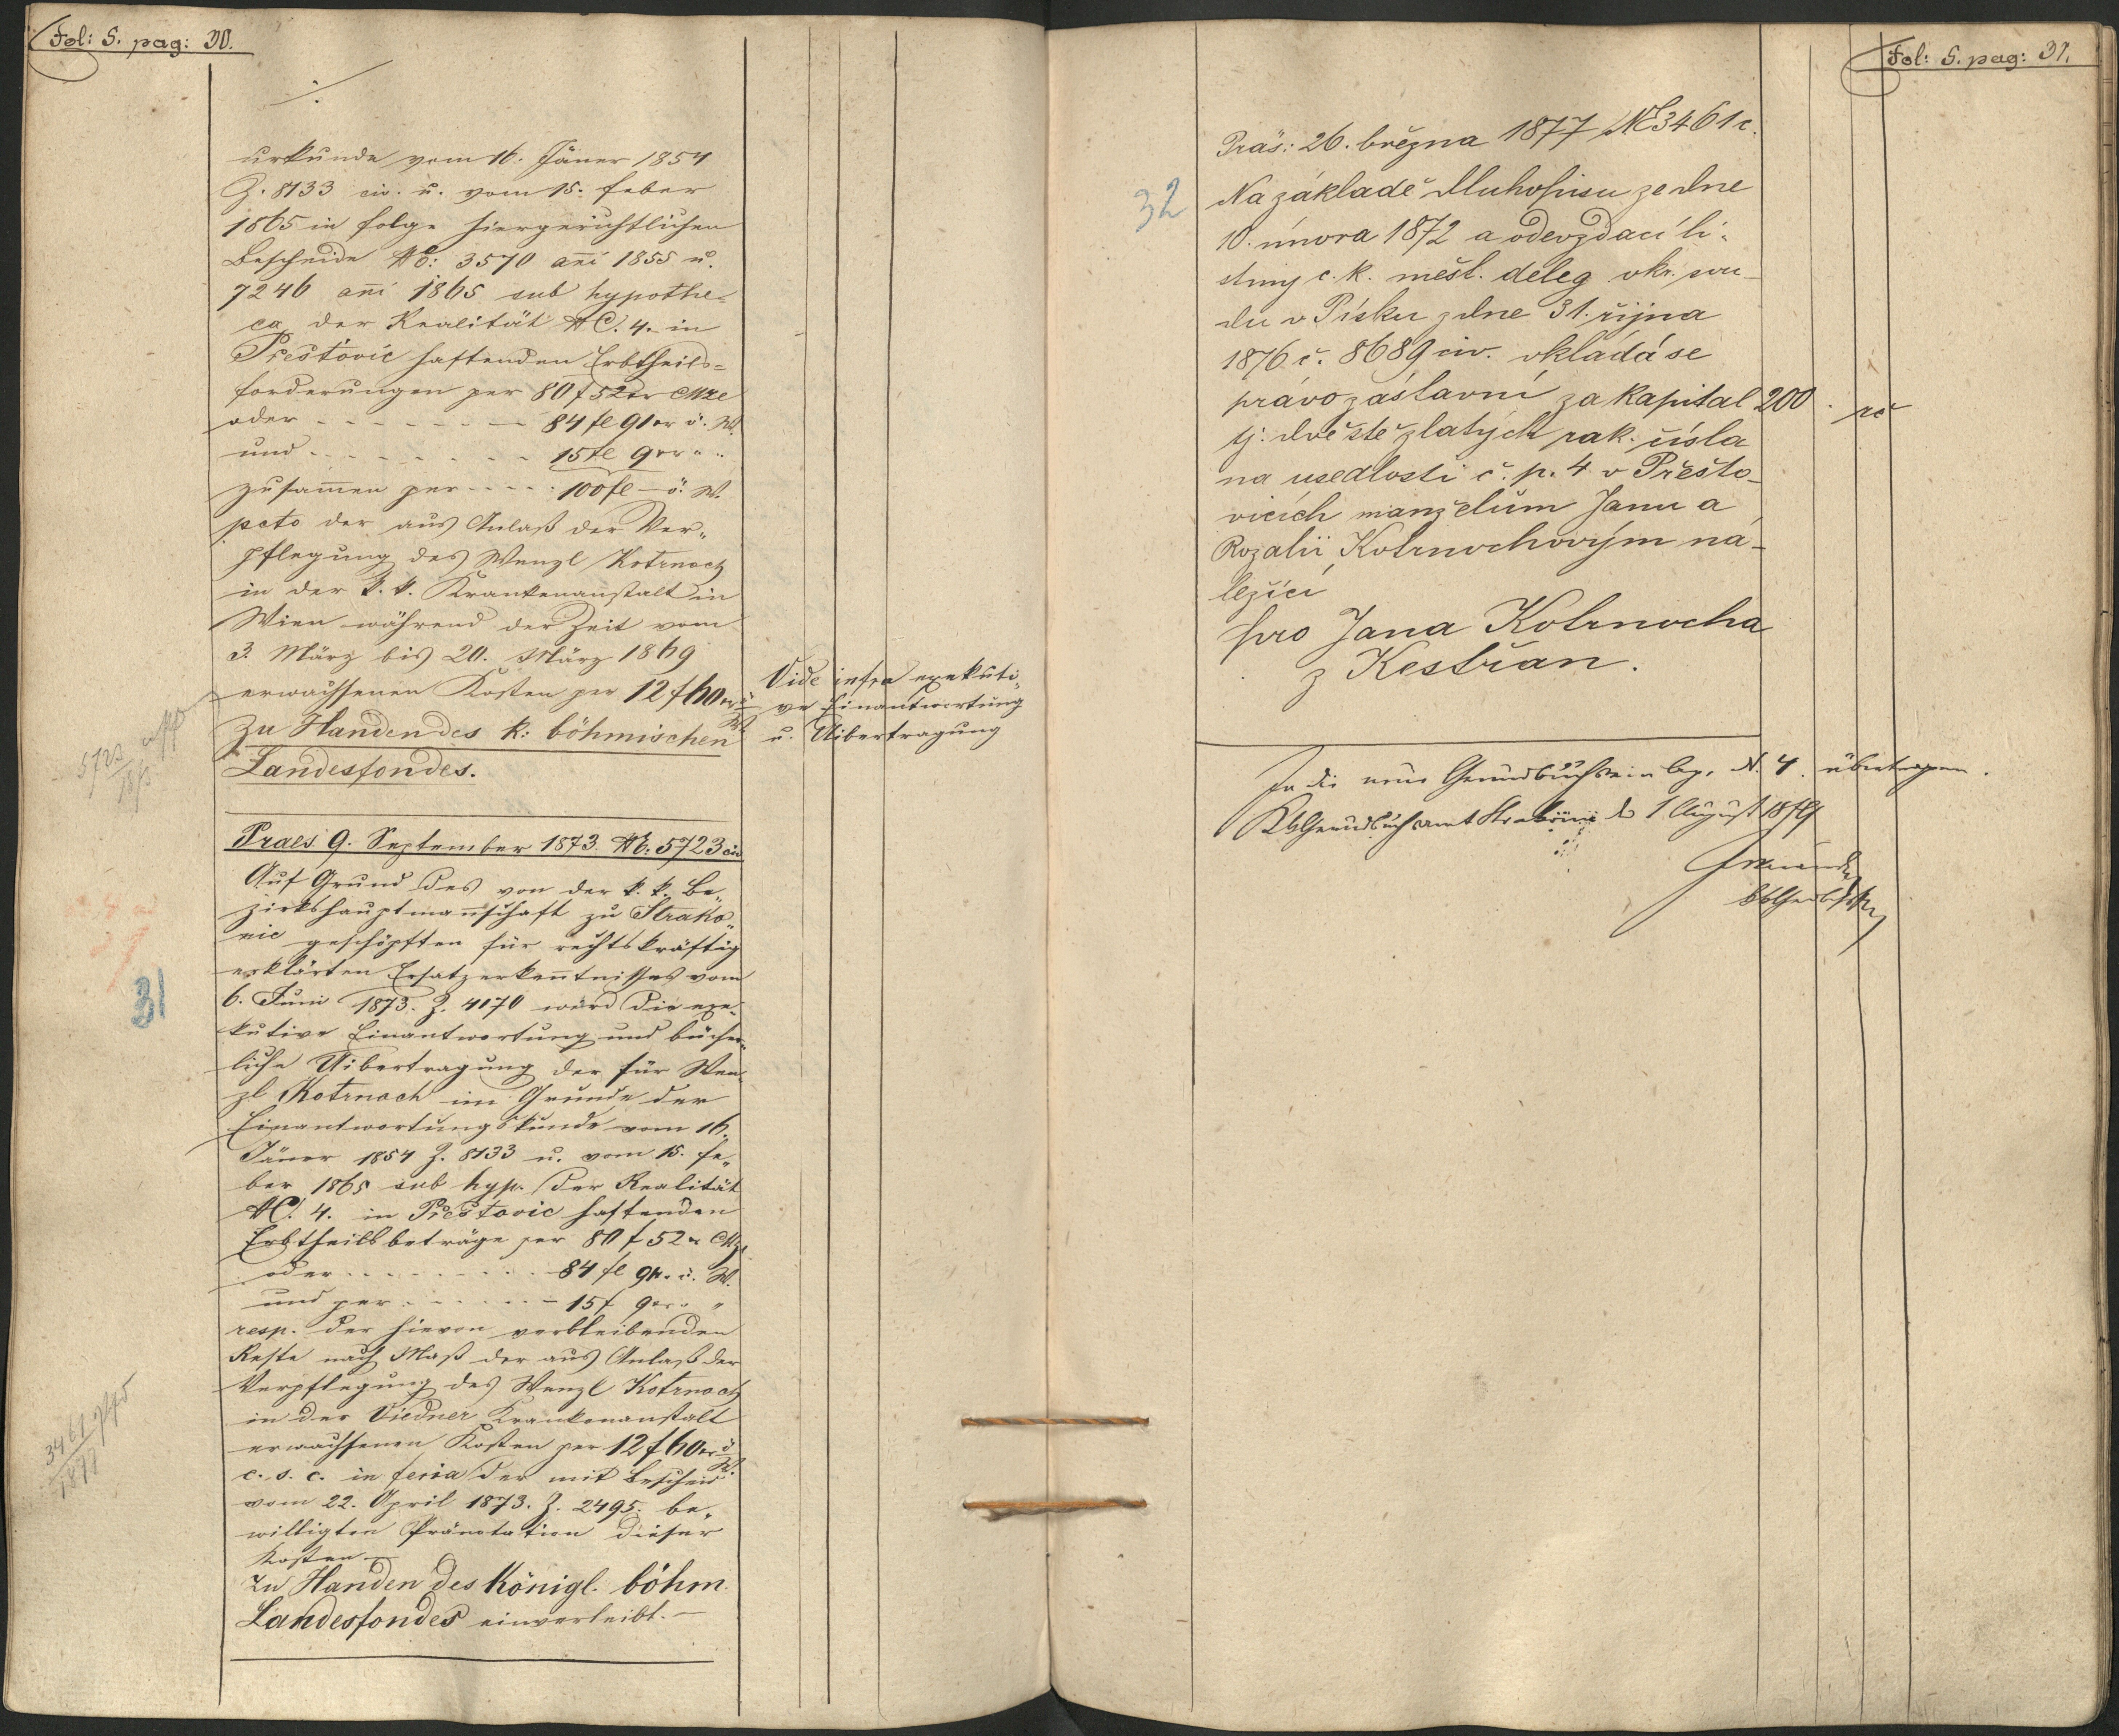 Fol: S. pag: 30.
./.
urkunde vom 16. Jäner 1854
Z. 8133 civ. u. vom 15. Feber
1865 in Folge hiergerichtlichen
Bescheide No: 3570 anni 1855 u.
7246 anni 1865 sub hypothe-
ca der Realität NC. 4. in
Přestovic haftenden Erbtheils-
forderungen per 80 f 52 xr CMze
oder - - - - - - 84 fl 91 xr ö. W.
und - - - - - - 15 fl 9 xr " "
zusammen per - - - - 100 fl - ö. W.
pcto der aus Anlaß der Ver-
pflegung des Wenzl Kotrnoch
in der k. k. Krankenanstalt in
Wien während der Zeit vom
3. März bis 20. März 1869
erwachsenen Kosten per 12 f 60 xr ö W.
Zu Handen des k: böhmischen
Landesfondes.
Vide infra exekuti-
ve Einantwortung
u. Uibertragung
5723
1873
Praes. 9. September 1873. No: 5723 civ
Auf Grund des von der k. k. Be-
zirkshauptmannschaft zu Strako-
nic geschöpften für rechtskräftig
erklärten Ersatzerkenntnisses vom
6. Juni 1873. Z. 4170 wird die exe-
kutive Einantwortung und bücher-
liche Uibertragung der für Wen-
zl Kotrnoch im Grunde der
Einantwortungskunde vom 16.
Jäner 1854 Z. 8133 u. vom 15. Fe-
ber 1865 sub hyp. der Realität
NC. 4. in Přestovic haftenden
Erbtheilsbeträge per 80 f 52 xr CMz
oder - - - - - - 84 fl 91 xr ö. W.
und per - - - - - - 15 f 9 xr " "
resp. der hievon verbleibenden
Reste nach Maß der aus Anlaß der
Verpflegung des Wenzl Kotrnoch
in der Viedner Krankenanstalt
erwachsenen Kosten per 12 f 60 xr ö W.
c. s. c. in feria der mit Bescheid
vom 22. April 1873. Z. 2495. be-
willigten Pränotation dieser
Kosten -
Zu Handen des Königl. böhm.
Landesfondes einverleibt. -
31
3461
1877
Fol: S. pag: 31.
32
Präs: 26. března 1877 NE 3461 c.
Na základě dluhopisu ze dne
10. února 1872 a odevzdací li-
stiny c. k. měst. deleg. okr. sou-
du v Písku z dne 31. října
1876 č. 8689 civ. vkládá se
právo zástavní za kapital 200 . rč
tj. dvě stě zlatých rak. čísla
na usedlosti č. p. 4 v Přešto-
vicích manželům Janu a
Rozalii Kotrnochovým ná-
ležící
pro Jana Kotrnocha
z Kestřan.
In die neue Grundbuchseinlage N. 4. übertragen.
KkGrundbuchsamt Strakonic d 1 August 1879